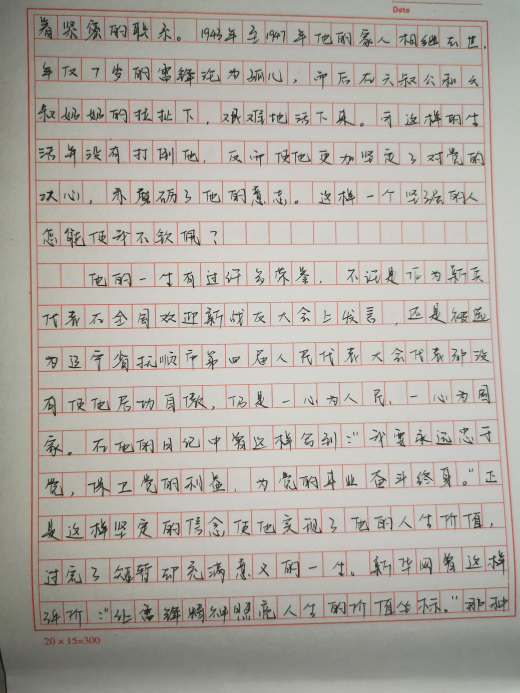 Date
着紧密的联系。1943年至1947年他的家人相继去世,
年仅7岁的雷锋沦为孤儿，而后在六叔公和六
叔奶奶的拉扯下，艰难地活下来。可这样的生
活并没有打倒他，反而使他更加坚定了对党的
决心，亦磨砺了他的意志。这样一个坚强的人
怎能使我不钦佩？
他的一生有过许多荣誉，不论是作为新兵
代表在全国欢迎新战友大会上发言，还是被选
为辽宁省抚顺市第四届人民代表大会代表都没
有使他居功自傲，仍是一心为人民，一心为国
家。在他的日记中曾这样写到："我要永远忠于
党，保卫党的利益，为党的事业奋斗终身。"正
是这样坚定的信念使他实现了他的人生价值，
过完了短暂却充满意义的一生。新华网曾这样
评价："让雷锋精神照亮人生的价值坐标。"那种
20×15=300